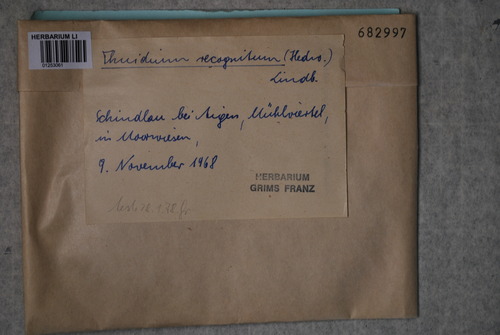 HERBARIUM LI
01253061
682997
Thuidium recognitum (Hedw.)
Lindb.
Schindlau bei Aigen, Mühlviertel,
in Moorwiesen,
9. November 1968
HERBARIUM
GRIMS FRANZ